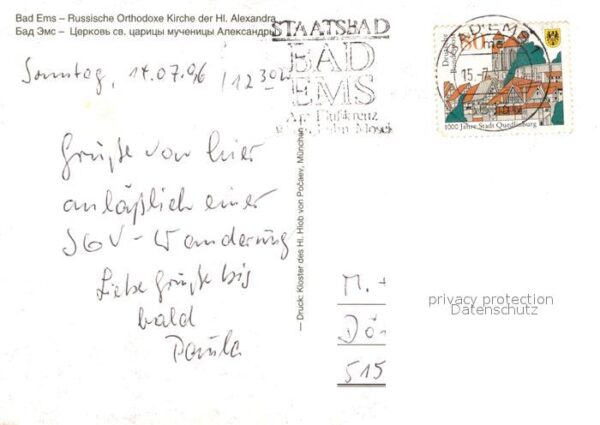 Bad Ems – Russische Orthodoxe Kirche der Hl. Alexandra
Бад Эмс – Церковь св. царицы мученицы Александры
STAATSBAD
BAD
EMS
Deutsche
Bundespost
80
BAD EMS
15.-7.
1000 Jahre Stadt Quedlinburg
Sonntag, 14.07.96 / 12 30
Grüße von hier
anläßlich einer
SGV-Wanderung
Liebe Grüße bis
bald
Paula
— Druck: Kloster des Hl. Hiob von Počaev, München
M.
Dör
515
privacy protection
Datenschutz